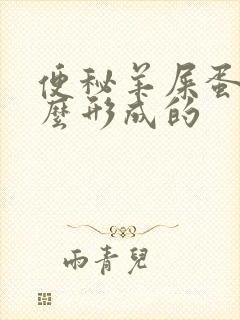 便秘羊屎蛋
麼形成的
雨青兒